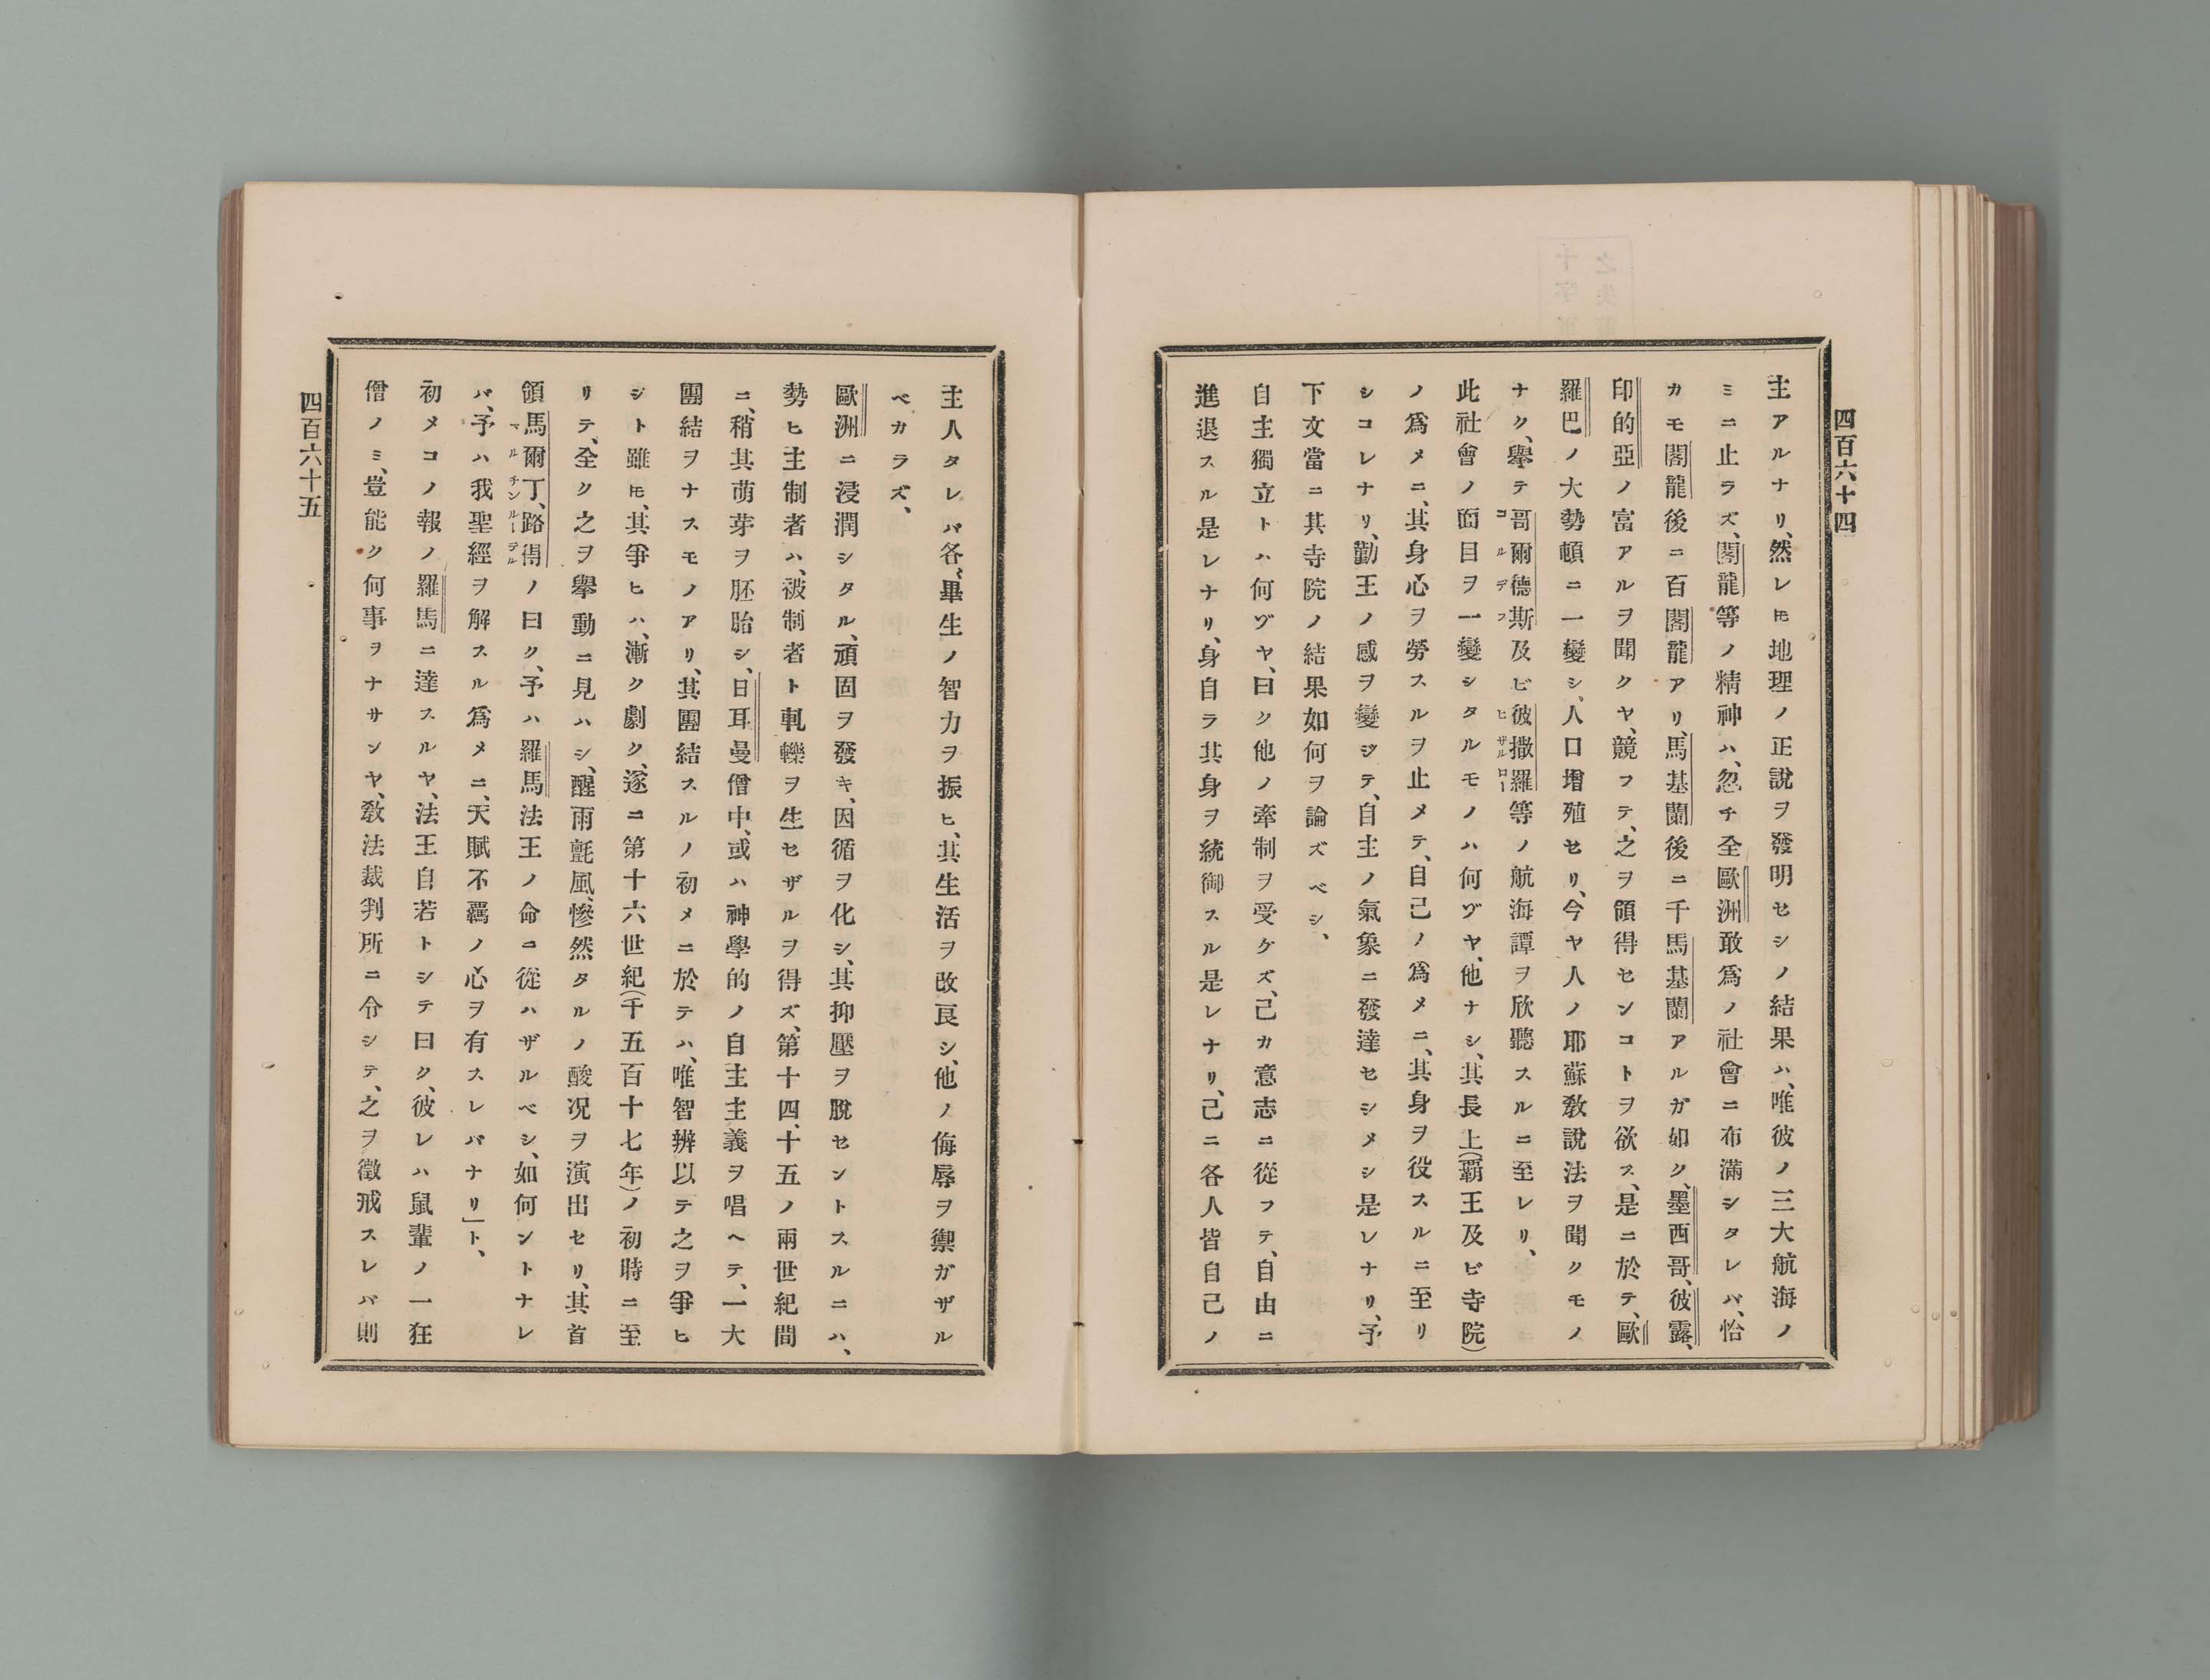 四百六十四
主アルナリ、然レ𪜈地理ノ正說ヲ發明セシノ結果ハ、唯彼ノ三大航海ノ
ミニ止ラズ、閣龍等ノ精神ハ、忽チ全歐洲敢爲ノ社會ニ布滿シタレバ、恰
カモ閣龍後ニ百閣龍アリ、馬基蘭後ニ千馬基蘭アルガ如ク、墨西哥、彼露、
印的亞ノ富アルヲ聞クヤ、競フテ、之ヲ領得センコトヲ欲ス、是ニ於テ、歐
羅巴ノ大勢頓ニ一變シ、人口增殖セリ、今ヤ人ノ耶蘇敎說法ヲ聞クモノ
ナク、擧テ哥爾德斯及ビ彼撒羅等ノ航海譚ヲ欣聽スルニ至レリ、
コルデフ ヒザルロー
此社會ノ面目ヲ一變シタルモノハ何ヅヤ、他ナシ、其長上(覇王及ビ寺院)
ノ爲メニ、其身心ヲ勞スルヲ止メテ、自己ノ爲メニ、其身ヲ役スルニ至リ
シコレナリ、勤王ノ感ヲ變ジテ、自主ノ氣象ニ發達セシメシ是レナリ、予
下文當ニ其寺院ノ結果如何ヲ論ズベシ、
自主獨立トハ何ヅヤ、曰ク他ノ牽制ヲ受ケズ、己カ意志ニ從フテ、自由ニ
進退スル是レナリ、身自ラ其身ヲ統御スル是レナリ、己ニ各人皆自己ノ
主人タレバ各〻畢生ノ智力ヲ振ヒ、其生活ヲ改良シ、他ノ侮辱ヲ禦ガザル
ベカラズ、
歐洲ニ浸潤シタル、頑固ヲ發キ、因循ヲ化シ、其抑壓ヲ脫セントスルニハ、
勢ヒ主制者ハ、被制者ト軋轢ヲ生セザルヲ得ズ、第十四、十五ノ兩世紀間
ニ、稍其萠芽ヲ胚胎シ、日耳曼僧中、或ハ神學的ノ自主主義ヲ唱ヘテ、一大
團結ヲナスモノアリ、其團結スルノ初メニ於テハ、唯智辨以テ之ヲ爭ヒ
ジト雖𪜈、其爭ヒハ、漸ク劇ク、遂ニ第十六世紀(千五百十七年)ノ初時ニ至
リテ、全ク之ヲ擧動ニ見ハシ、醒雨氈風、慘然タルノ酸况ヲ演出セリ、其首
領馬爾丁、路得ノ曰ク、予ハ羅馬法王ノ命ニ從ハザルベシ、如何ントナレ
マルチンルーテル
バ、予ハ我聖經ヲ解スル爲メニ、天賦不羈ノ心ヲ有スレバナリ」ト、
初メコノ報ノ羅馬ニ達スルヤ、法王自若トシテ曰ク、彼レハ鼠輩ノ一狂
僧ノミ、豈能ク何事ヲナサンヤ、敎法裁判所ニ令シテ、之ヲ徵戒スレバ則
四百六十五